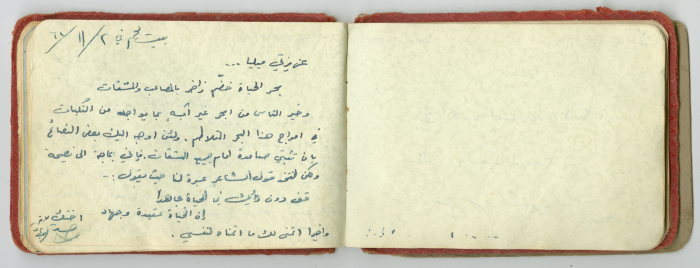 بيت لحم في ٢ / ١١ / ٦٧
عزيزتي ميليا ...
بحر الحياة خضم زاخر بالمصاعب والمشقات
وخير الناس من ابحر غير آبه بما يواجه من النكبات
في امواج هذا البحر المتلاطم . ولئن اوجه اليك بعض النصائح
بان تثبتي صامدة أمام جميع المشقات . فإني بحاجة الى نصيحة
ولكن لنتخذ قول الشاعر عبرة لنا حيث يقول :-
قف دون رأيك في الحياة مجاهدا
إن الحياة عقيدة وجهاد
واخيرا اتمنى لك ما اتمناه لنفسي .